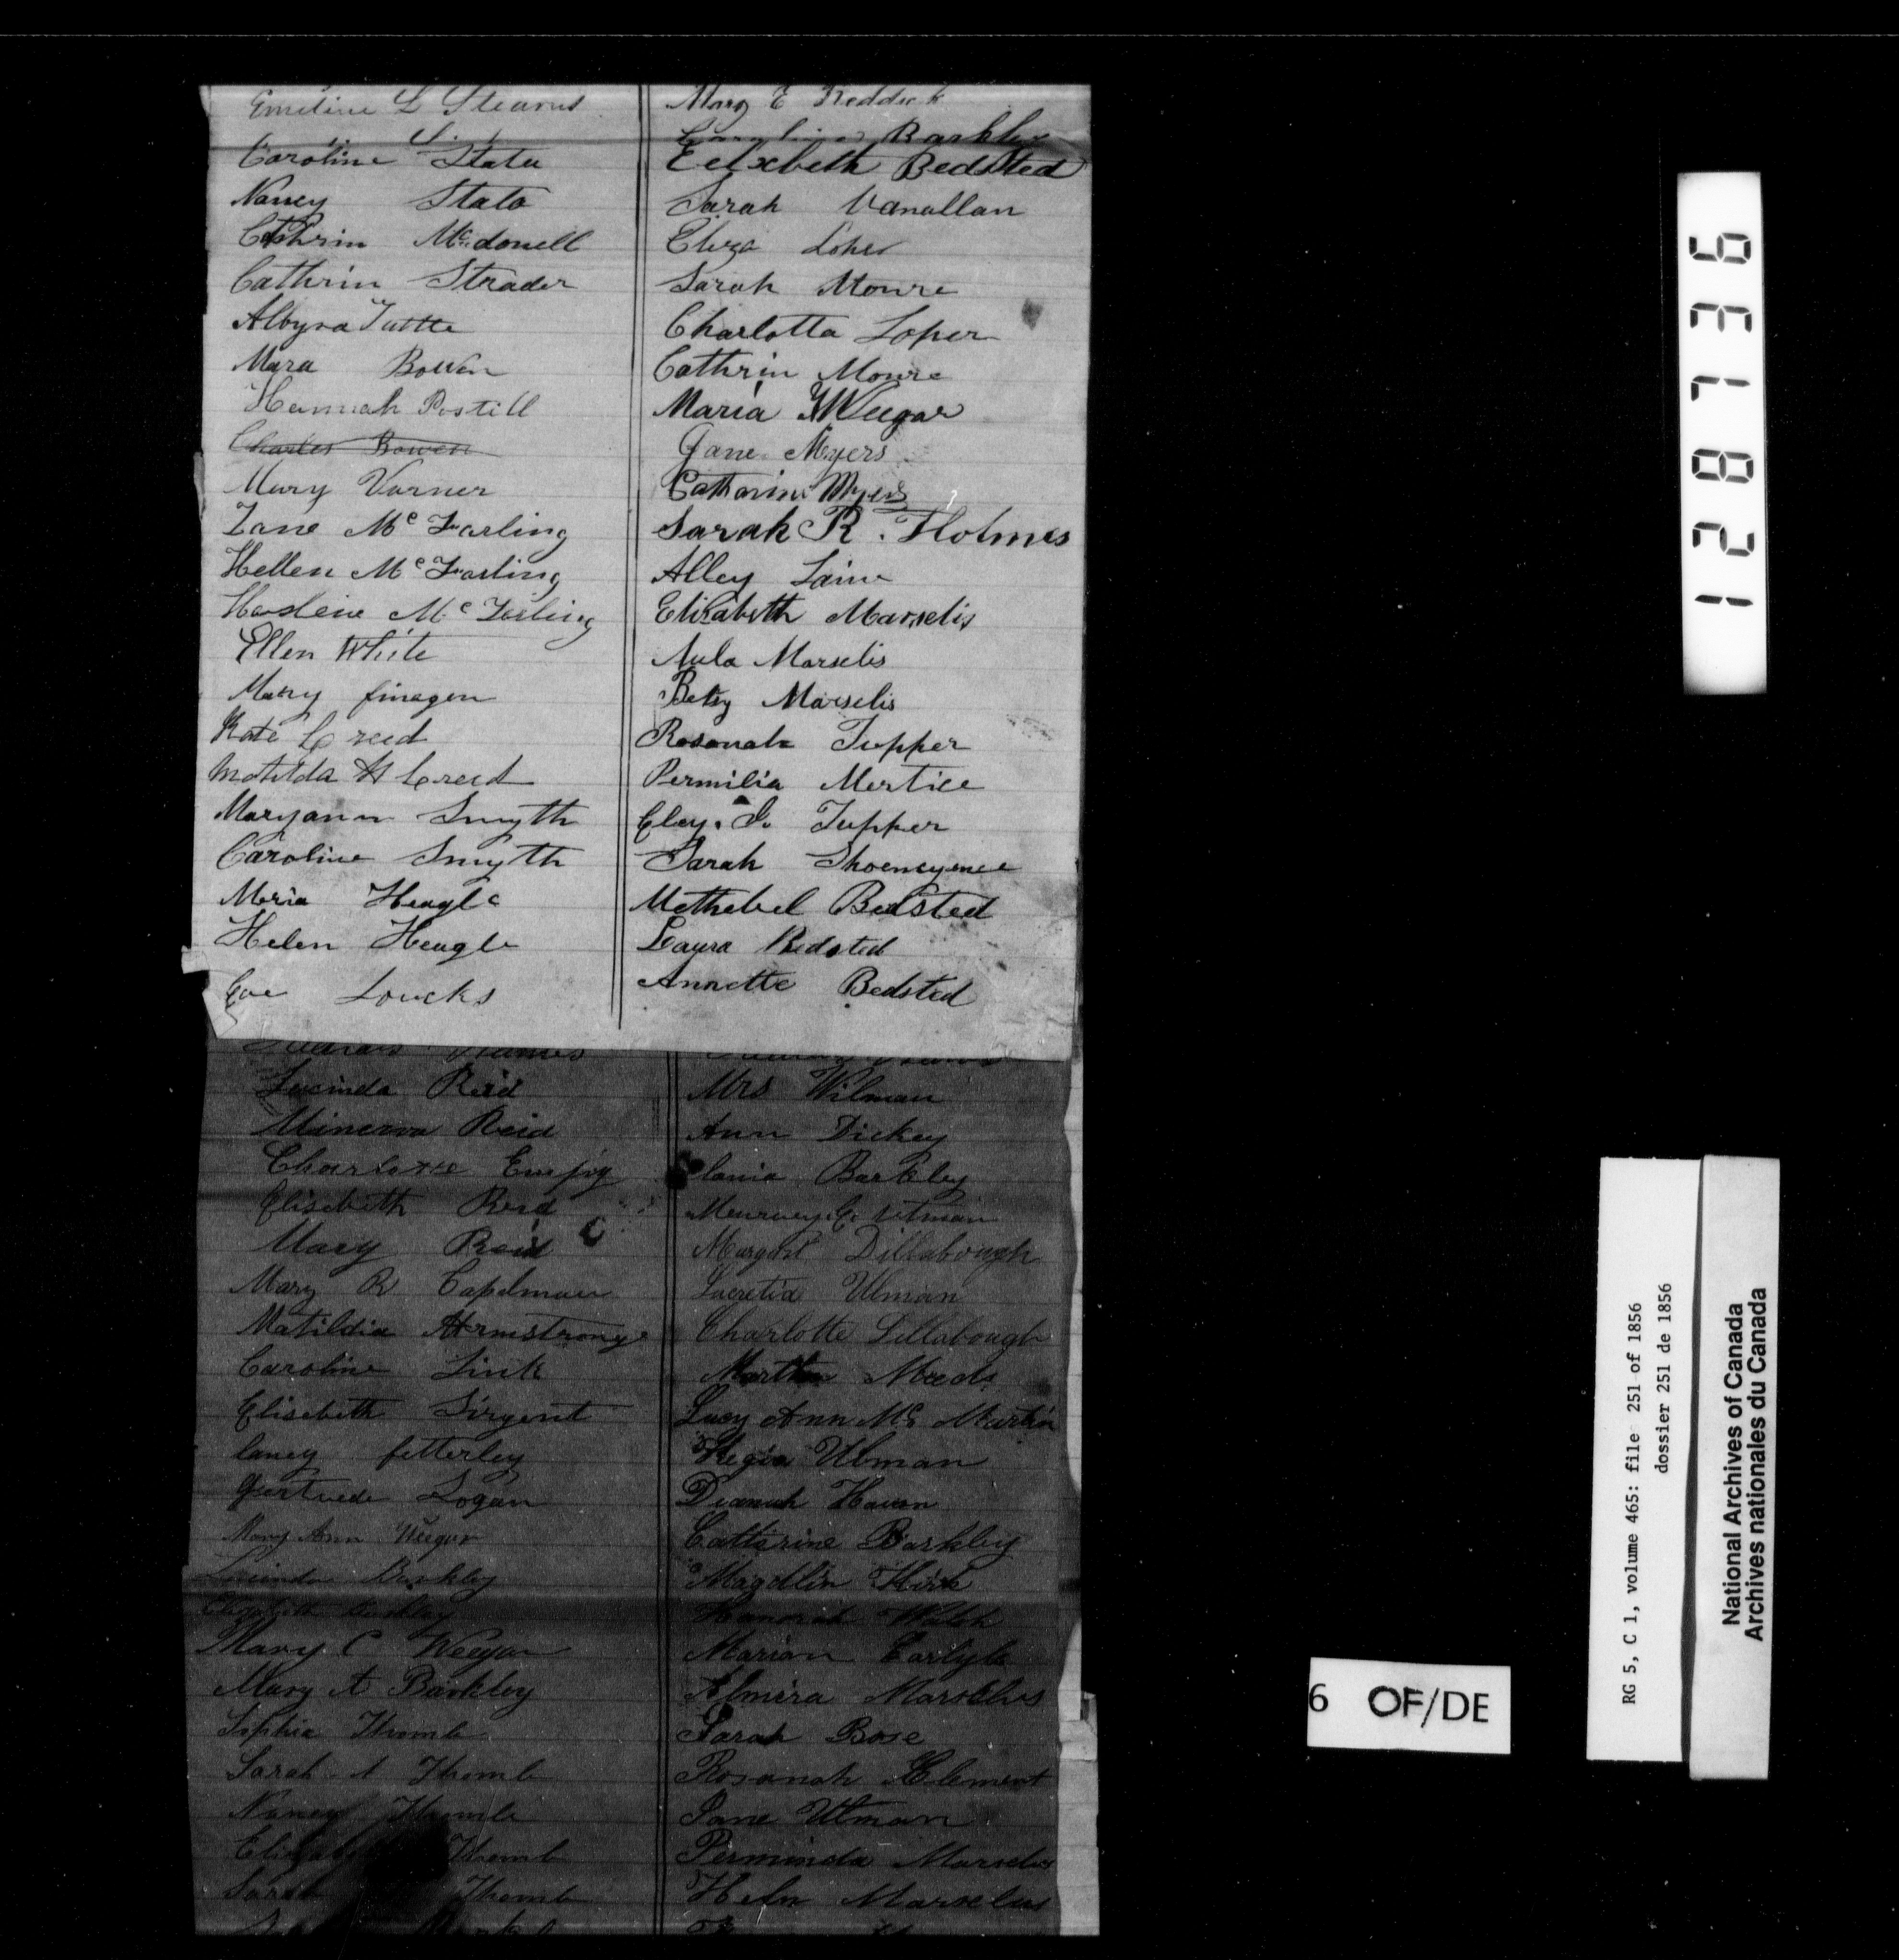 Emeline L Stearns
Caroline Stata
Nancy Stata
Cathrin McDonell
Cathrin Strader
Albyra Tuttle
Mara Bowen
Hannah Postill
Charles Bowen
Mary Varner
Jane Mc Farling
Hellen Mc Farling
Mc Farling
Ellen White
Mary finagen
Kate Creed
Matilda H Creed
Maryann Smyth
Caroline Smyth
Meria Heagle
Helen Heagle
Eve Loucks
Mary E Reddick
Caroline Barkley
Elixebeth Bedsted
Sarah Vanallan
Eliza Loper
Sarah Monre
Charlotta Loper
Cathrin Monre
Maria Weegar
Jane Myers
Catharine Myers
Sarah R. Holmes
Alley Laine
Elizabeth Marselis
Marselis
Betsy Marselis
Rosanah Tupper
Permilia Mertice
Tupper
Sarah
Methebel Bedsted
Laura Bedsted
Annette Bedsted
Lucinda Reid
Minerva Reid
Charlotte Empy
Elisebeth Reid
Mary Reid
Mary R Capelman
Matildia Armstrong
Caroline Link
Elisebeth Sirgent
laney fetterley
Gertrude Logan
Mary Ann Weegar
Lucinda Barkley
Elizabeth Barkley
Mary C Weegar
Mary A Barkley
Sophia Thomb
Sarah A Thomb
Nancy Thomb
Thomb
Sarah Thomb
Mrs Wilman
Ann Dickey
lania Barkley
Ulman
Margret Dillabough
Lucretia Ulman
Charlotte Dillabough
Martha Meeds
Lucy Ann Mc Martin
Ulman
Dianah Haven
Catterine Barkley
Magdlin
Hanorah Walsh
Marian Carlyle
Almira Marselus
Sarah Bose
Rosanah Clement
Jane Ulman
Perminda Marselus
Heln Marselus
128736
RG 5, C 1, volume 465: file 251 of 1856
dossier 251 de 1856
National Archives of Canada
Archives nationales du Canada
6 OF/DE